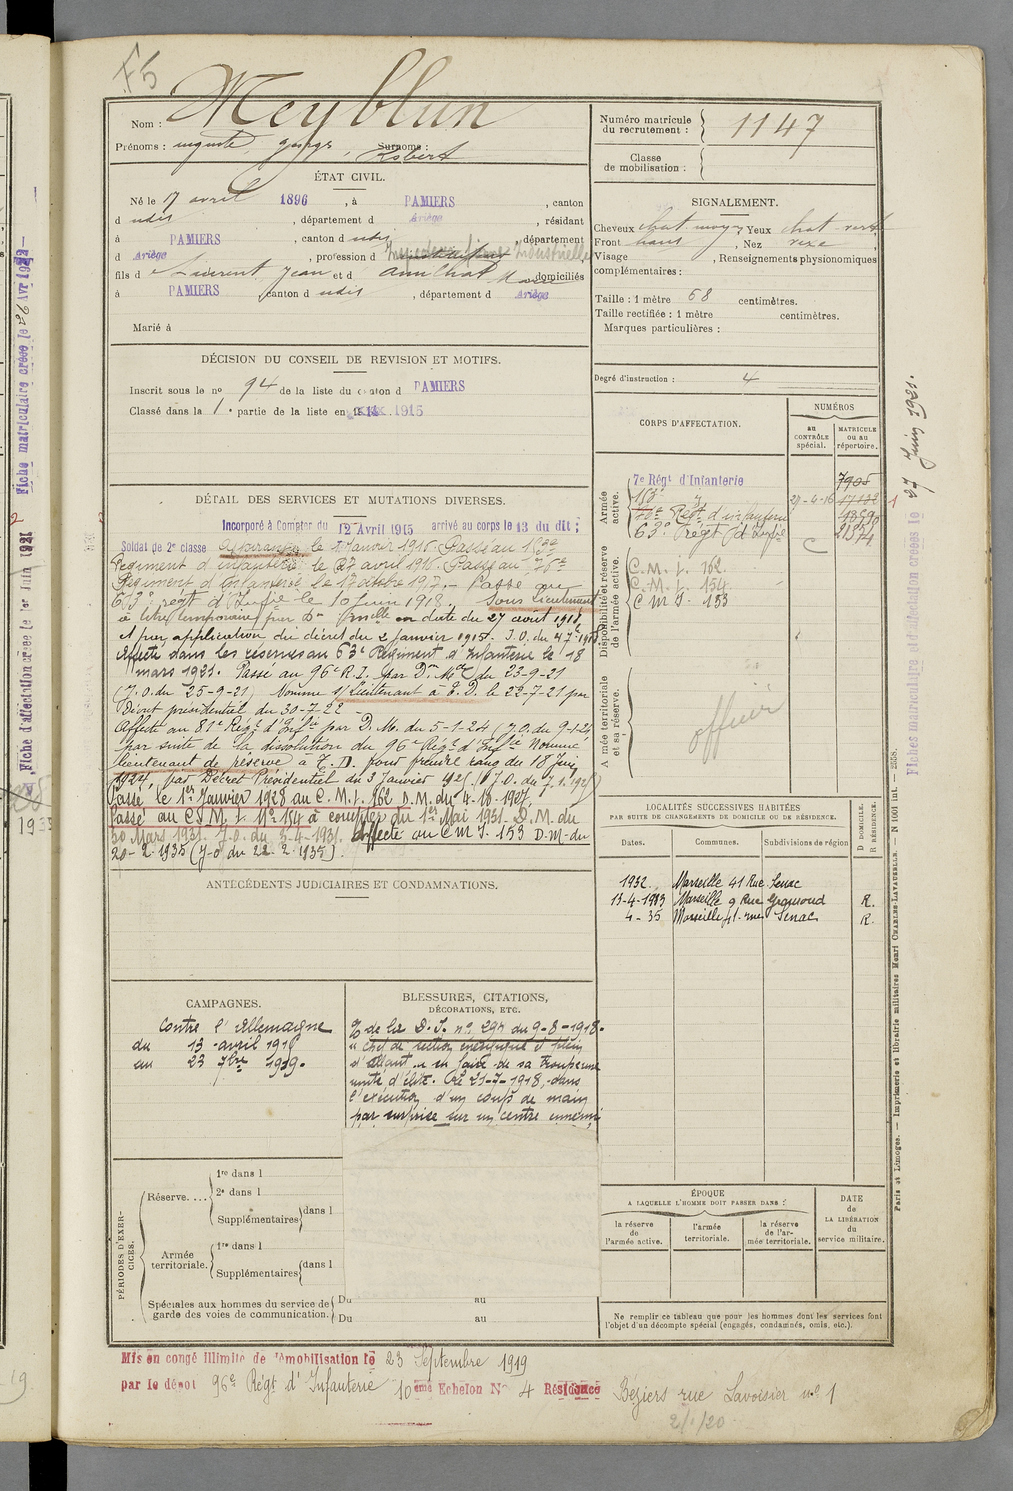 F5
Nom : Meyblum
Prénoms : auguste, georges, Robert Surnoms :
ÉTAT CIVIL.
Né le 17 avril 1896, à PAMIERS, canton
d udis, département d Ariège, résidant
à PAMIERS, canton d udis, département
d Ariège, profession d Industrielle
fils d e Laurent Jean et d domiciliés
à PAMIERS canton d udis, département d Ariège
Marié à
DÉCISION DU CONSEIL DE REVISION ET MOTIFS.
Inscrit sous le no 94 de la liste du canton d PAMIERS
Classé dans la 1e partie de la liste en 1915
DÉTAIL DES SERVICES ET MUTATIONS DIVERSES.
Incorporé à Compter du 12 Avril 1915 arrivé au corps le 13 du dit ;
Soldat de 2e classe Aspirant le 1 Janvier 1916. Passé au 153e
Régiment d'infanterie le 27 avril 1916. Passé au
Régiment d'Infanterie le 17 octobre 1917. – Passé au
63e régt d'Infie le 10 juin 1918. Sous lieutenant
à titre temporaire par Don Mlle en date du 27 août 1918,
et par application du décret du 2 Janvier 1915. J.O. du
Affecté dans les réserves au 63e Régiment d'Infanterie le 18
mars 1921. Passé au 96e R.I. par Dn Mle du 23-9-21
(J.O. du 25-9-21) Nommé s/Lieutenant à T.D. le 22-7-21 par
Décret présidentiel du 30-7-22
Affecté au 81e Régt d'Infie par D.M. du 5-1-24 (J.O. du 9-1-24
par suite de la dissolution du 96e Régt d'Infie Nommé
lieutenant de réserve à T.D. pour prendre rang du 18 Juin
1924, par Décret Présidentiel du 3 Janvier 192 (J.O. du 7.1.192 )
Passé le 1er Janvier 1928 au C.M.I. 162 D.M. du 4-10-1927.
Passé au C.M.I. No 154 à compter du 1er Mai 1931. D.M. du
30 Mars 1931. J.O. du 5-4-1931. Affecté au C M I - 153 D.M. du
20-2-1935 (J-O du 22-2-1935).
ANTÉCÉDENTS JUDICIAIRES ET CONDAMNATIONS.
CAMPAGNES.
Contre l'Allemagne
du 13 avril 1915
au 23 7bre 1919.
BLESSURES, CITATIONS,
DÉCORATIONS, ETC.
de la D.I. no 294 du 9-8-1918.
"Chef de section énergique et plein
d'allant a su faire de sa troupe une
unité d'élite. Le 21-7-1918, dans
l'exécution d'un coup de main
par surprise sur un centre ennemi
PÉRIODES D'EXERCICES.
Réserve....
1re dans l
2e dans l
Supplémentaires dans l
Armée territoriale.
1re dans l
Supplémentaires dans l
Spéciales aux hommes du service de garde des voies de communication.
Du au
Du au
Numéro matricule du recrutement : 1147
Classe de mobilisation :
SIGNALEMENT.
Cheveux chat moyen Yeux chat vert
Front haut, Nez rexe
Visage, Renseignements physionomiques
complémentaires :
Taille : 1 mètre 68 centimètres.
Taille rectifiée : 1 mètre centimètres.
Marques particulières :
Degré d'instruction : 4
CORPS D'AFFECTATION.
NUMÉROS
au CONTRÔLE spécial.
MATRICULE ou au répertoire.
Armée active.
7e Régt d'Infanterie 7905
153e 29-4-16
Régt d'infanterie
63e Régt d'Infie
Disponibilité et réserve de l'armée active.
C.M.I. 162
C.M.I. 154
C M I - 153
Armée territoriale et sa réserve.
officier
LOCALITÉS SUCCESSIVES HABITÉES
PAR SUITE DE CHANGEMENTS DE DOMICILE OU DE RÉSIDENCE.
Dates. Communes. Subdivisions de région
D DOMICILE. R RÉSIDENCE.
1932. Marseille 41 Rue Senac
13-4-1933 Marseille 9 Rue R.
4-35 Marseille 41 rue Senac R.
ÉPOQUE
A LAQUELLE L'HOMME DOIT PASSER DANS :
la réserve de l'armée active.
l'armée territoriale.
la réserve de l'armée territoriale.
DATE de LA LIBÉRATION du service militaire.
Ne remplir ce tableau que pour les hommes dont les services font
l'objet d'un décompte spécial (engagés, condamnés, omis, etc.).
Mis en congé illimité de démobilisation le 23 Septembre 1919
par le dépôt 96e Régt d'Infanterie 10ème Echelon No 4 Résidence Béziers rue Lavoisier no 1
2/1/20
Paris et Limoges. — Imprimerie et librairie militaires Henri CHARLES-LAVAUZELLE. — N 1001 int. — 2558.
Fiches matriculaire et d'affectation créées le 27 Juin 1921.
Fiche d'affectation créée le 1er Juin 1921
Fiche matriculaire créée le 26 Avr